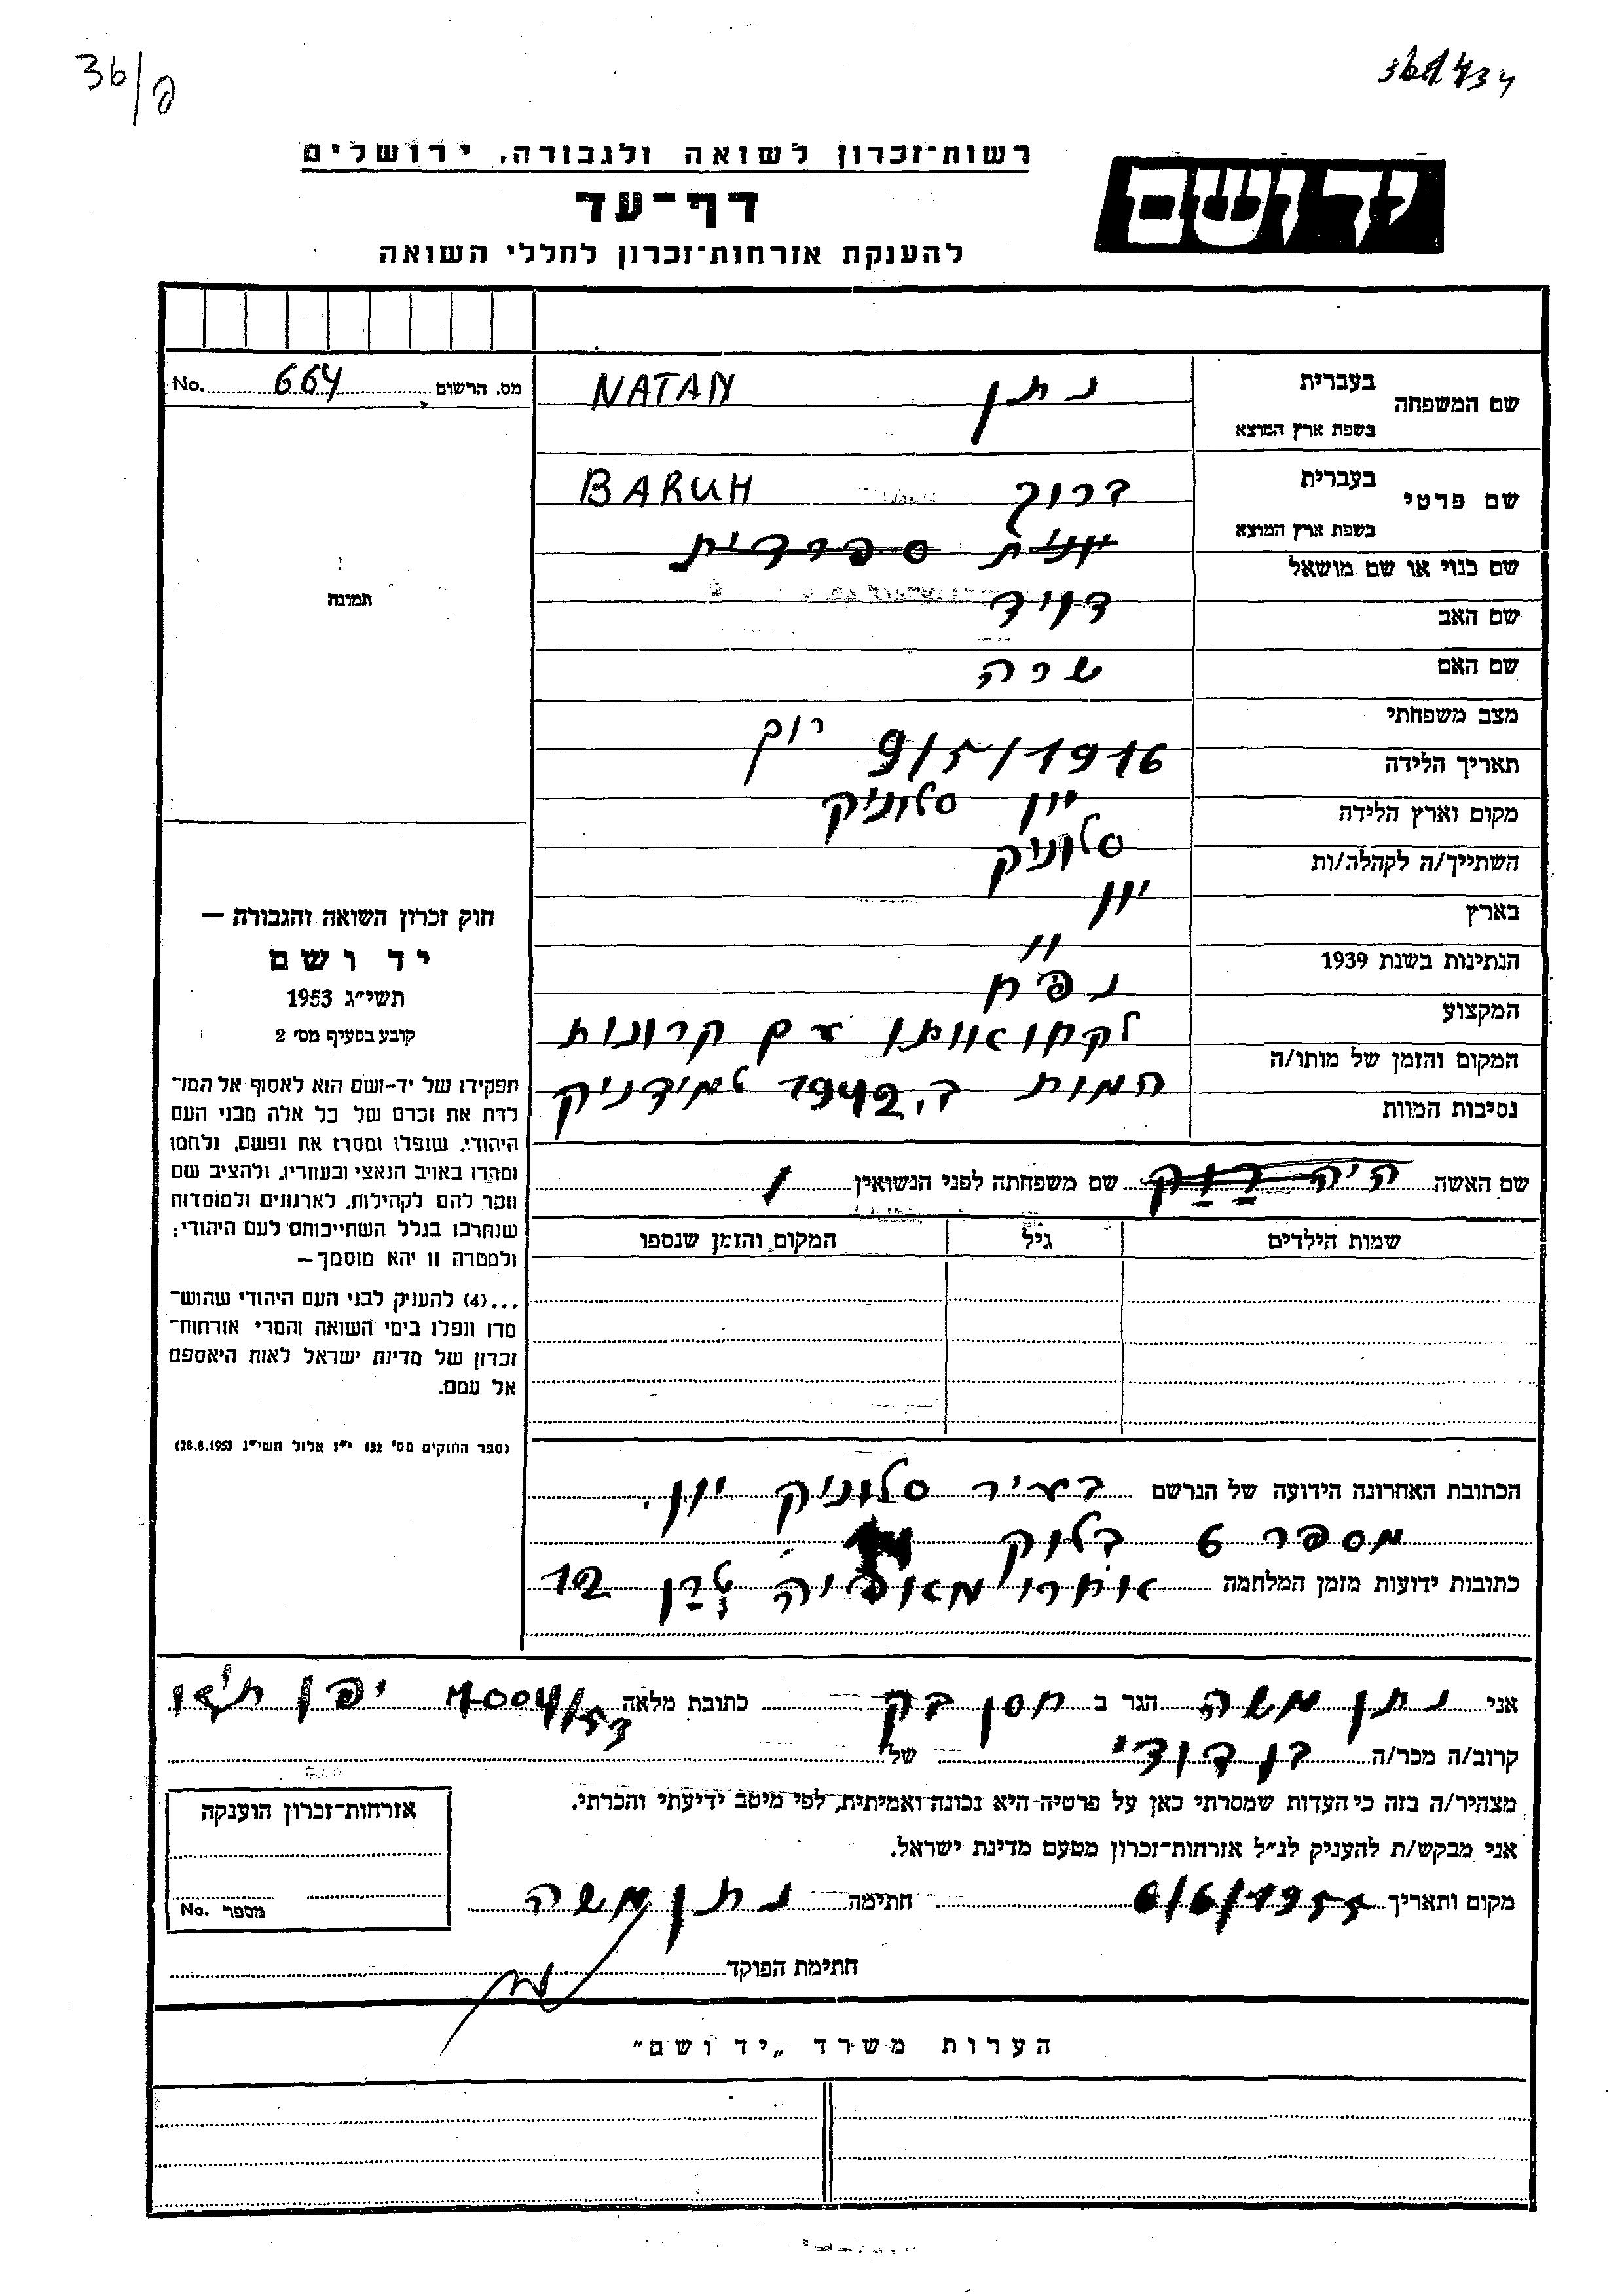 36/פ
רשות־זכרון לשואה ולגבורה, ירושלים
יד ושם
דף־עד
להענקת אזרחות־זכרון לחללי השואה
שם המשפחה בעברית נתן NATAN
בשפת ארץ המוצא
שם פרטי בעברית ברוך BARUH
בשפת ארץ המוצא
שם כנוי או שם מושאל
שם האב דויד
שם האם שרה
מצב משפחתי
תאריך הלידה 9/5/1916
מקום וארץ הלידה יון סלוניק
השתייך/ה לקהלה/ות סלוניק
בארץ יון
הנתינות בשנת 1939 "
המקצוע נפח
המקום והזמן של מותו/ה לקחו אותו עם קרונות
נסיבות המוות המות ב. 1942
שם האשה שם משפחתה לפני הנשואין
שמות הילדים גיל המקום והזמן שנספו
הכתובת האחרונה הידועה של הנרשם בעיר סלוניק יון.
מספר 6 בלוק
כתובות ידועות מזמן המלחמה 12
מס. הרשום 664 No.
תמונה
חוק זכרון השואה והגבורה —
יד ושם
תשי"ג 1953
קובע בסעיף מס' 2
תפקידו של יד-ושם הוא לאסוף אל המו־
לדת את זכרם של כל אלה מבני העם
היהודי, שנפלו ומסרו את נפשם, נלחמו
ומרדו באויב הנאצי ובעוזריו, ולהציב שם
וזכר להם לקהילות, לארגונים ולמוסדות
שנחרבו בגלל השתייכותם לעם היהודי;
ולמטרה זו יהא מוסמך—
...(4) להעניק לבני העם היהודי שהוש־
מדו ונפלו בימי השואה והמרי אזרחות־
זכרון של מדינת ישראל לאות היאספם
אל עמם.
(ספר החוקים מס' 132 י"ז אלול תשי"ג 28.8.1953)
אני נתן משה הגר ב חסן בק כתובת מלאה יפו
קרוב/ה מכר/ה בן דודי של
מצהיר/ה בזה כי העדות שמסרתי כאן על פרטיה היא נכונה ואמיתית, לפי מיטב ידיעתי והכרתי.
אני מבקש/ת להעניק לנ"ל אזרחות־זכרון מטעם מדינת ישראל.
מקום ותאריך 6/6/1955 חתימה נתן משה
חתימת הפוקד
אזרחות־זכרון הוענקה
מספר No.
הערות משרד „יד ושם"